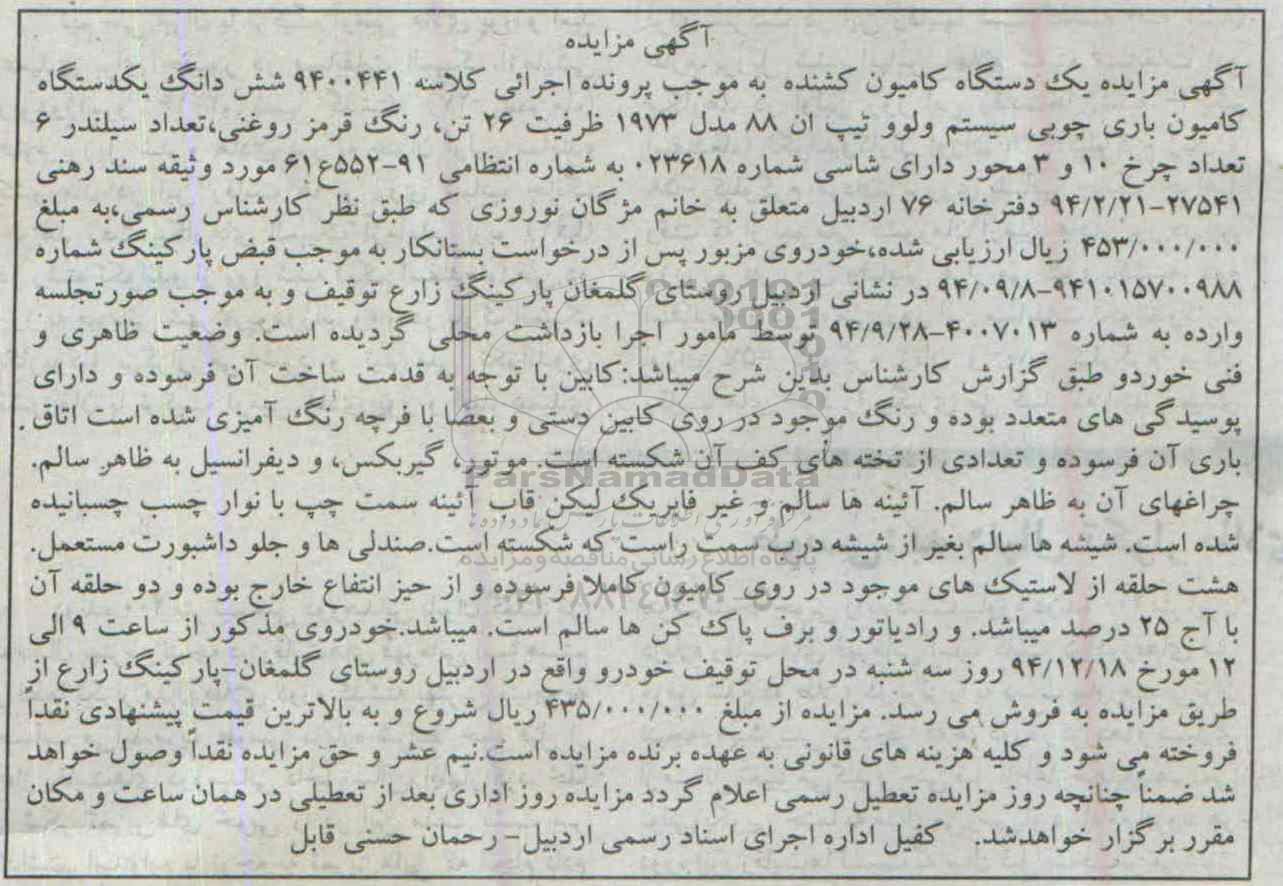 آگهی مزایده
آگهی مزایده یک دستگاه کامیون کشنده به موجب پرونده اجرائی کلاسه ۹۴۰۰۴۴۱ شش دانگ یکدستگاه
کامیون باری چوبی سیستم ولوو تیپ ان ۸۸ مدل ۱۹۷۳ ظرفیت ۲۶ تن، رنگ قرمز روغنی،تعداد سیلندر ۶
تعداد چرخ ۱۰ و ۳ محور دارای شاسی شماره ۰۲۳۶۱۸ به شماره انتظامی ۹۱-۵۵۲ع۶۱ مورد وثیقه سند رهنی
۲۷۵۴۱-۹۴/۲/۲۱ دفترخانه ۷۶ اردبیل متعلق به خانم مژگان نوروزی که طبق نظر کارشناس رسمی،به مبلغ
۴۵۳/۰۰۰/۰۰۰ زیال ارزیابی شده،خودروی مزبور پس از درخواست بستانکار به موجب قبض پارکینگ شماره
۹۴۱۰۱۵۷۰۰۹۸۸-۹۴/۰۹/۸ در نشانی اردبیل روستای گلمغان پارکینگ زارع توقیف و به موجب صورتجلسه
وارده به شماره ۴۰۰۷۰۱۳-۹۴/۹/۲۸ توسط مامور اجرا بازداشت محلی گردیده است. وضعیت ظاهری و
فنی خوردو طبق گزارش کارشناس بدین شرح میباشد:کابین با توجه به قدمت ساخت آن فرسوده و دارای
پوسیدگی های متعدد بوده و رنگ موجود در روی کابین دستی و بعضا با فرچه رنگ آمیزی شده است اتاق
باری آن فرسوده و تعدادی از تخته های کف آن شکسته است. موتور، گیربکس، و دیفرانسیل به ظاهر سالم.
چراغهای آن به ظاهر سالم. آئینه ها سالم و غیر فابریک لیکن قاب آئینه سمت چپ با نوار چسب چسبانیده
شده است. شیشه ها سالم بغیر از شیشه درب سمت راست که شکسته است.صندلی ها و جلو داشبورت مستعمل.
هشت حلقه از لاستیک های موجود در روی کامیون کاملا فرسوده و از حیز انتفاع خارج بوده و دو حلقه آن
با آج ۲۵ درصد میباشد. و رادیاتور و برف پاک کن ها سالم است. میباشد.خودروی مذکور از ساعت ۹ الی
۱۲ مورخ ۹۴/۱۲/۱۸ روز سه شنبه در محل توقیف خودرو واقع در اردبیل روستای گلمغان-پارکینگ زارع از
طریق مزایده به فروش می رسد. مزایده از مبلغ ۴۳۵/۰۰۰/۰۰۰ ریال شروع و به بالاترین قیمت پیشنهادی نقداً
فروخته می شود و کلیه هزینه های قانونی به عهده برنده مزایده است.نیم عشر و حق مزایده نقداً وصول خواهد
شد ضمناً چنانچه روز مزایده تعطیل رسمی اعلام گردد مزایده روز اداری بعد از تعطیلی در همان ساعت و مکان
مقرر برگزار خواهدشد. کفیل اداره اجرای اسناد رسمی اردبیل- رحمان حسنی قابل
ParsNamadData
پایگاه اطلاع رسانی مناقصه و مزایده